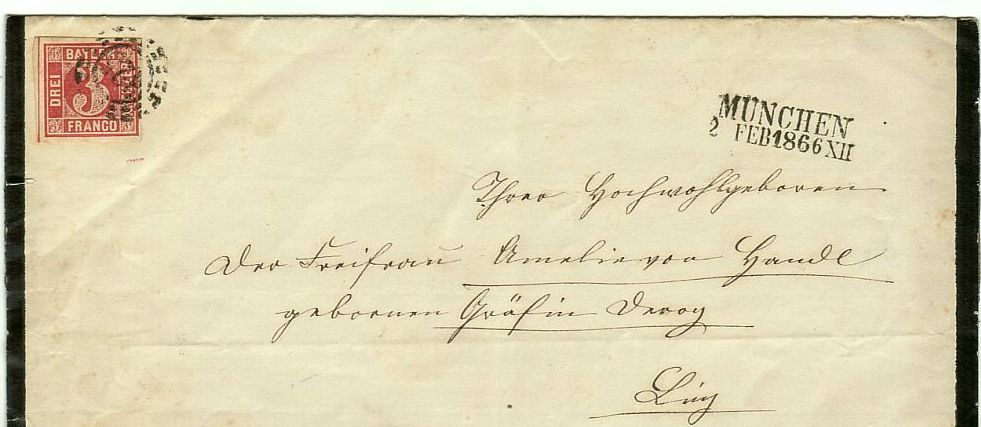 BAYERN
DREI
3
KREUZER
FRANCO
MÜNCHEN
2 FEB 1866 XII
Ihrer Hochwohlgeboren
Der Freifrau Amelie von Handl
gebornen Gräfin Deroy
Linz